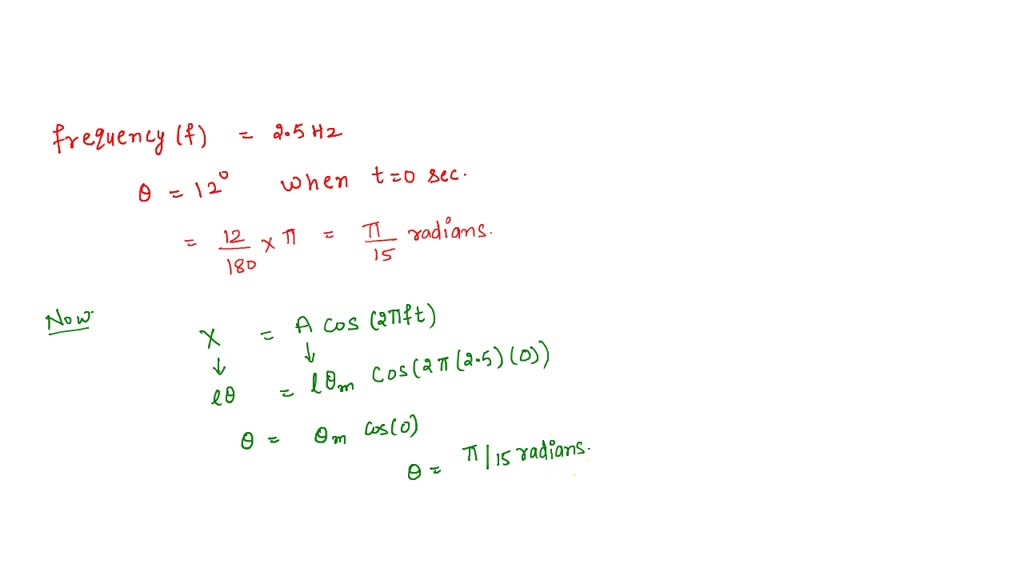 frequency (f) = 2.5 Hz
θ = 12° when t=0 sec.
= 12/180 × π = π/15 radians.
Now
X = A cos (2πft)
↓ ↓
lθ = lθm cos(2π(2.5)(0))
θ = θm cos(0)
θ = π/15 radians.